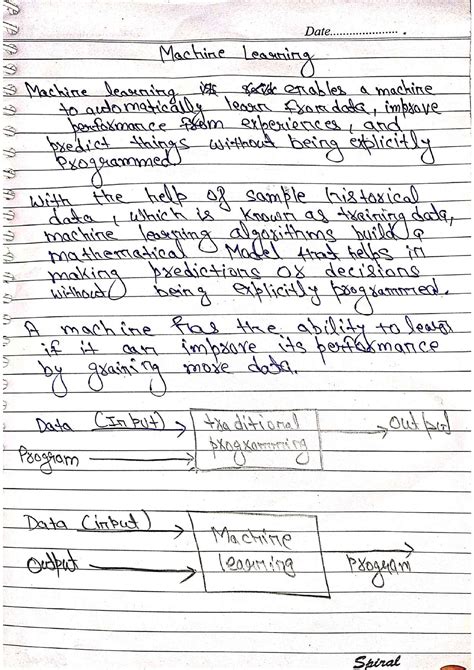 Date.......................
Machine Learning
Machine learning enables a machine
to automatically learn from data, improve
performance from experiences, and
predict things without being explicitly
Programmed.
With the help of sample historical
data, which is known as training data,
machine learning algorithms build a
mathematical Model that helps in
making predictions or decisions
without being explicitly programmed.
A machine has the ability to learn
if it can improve its performance
by graining more data.
Data (Input) traditional Output
Program programming
Data (input) Machine
Output learning Program
Spiral